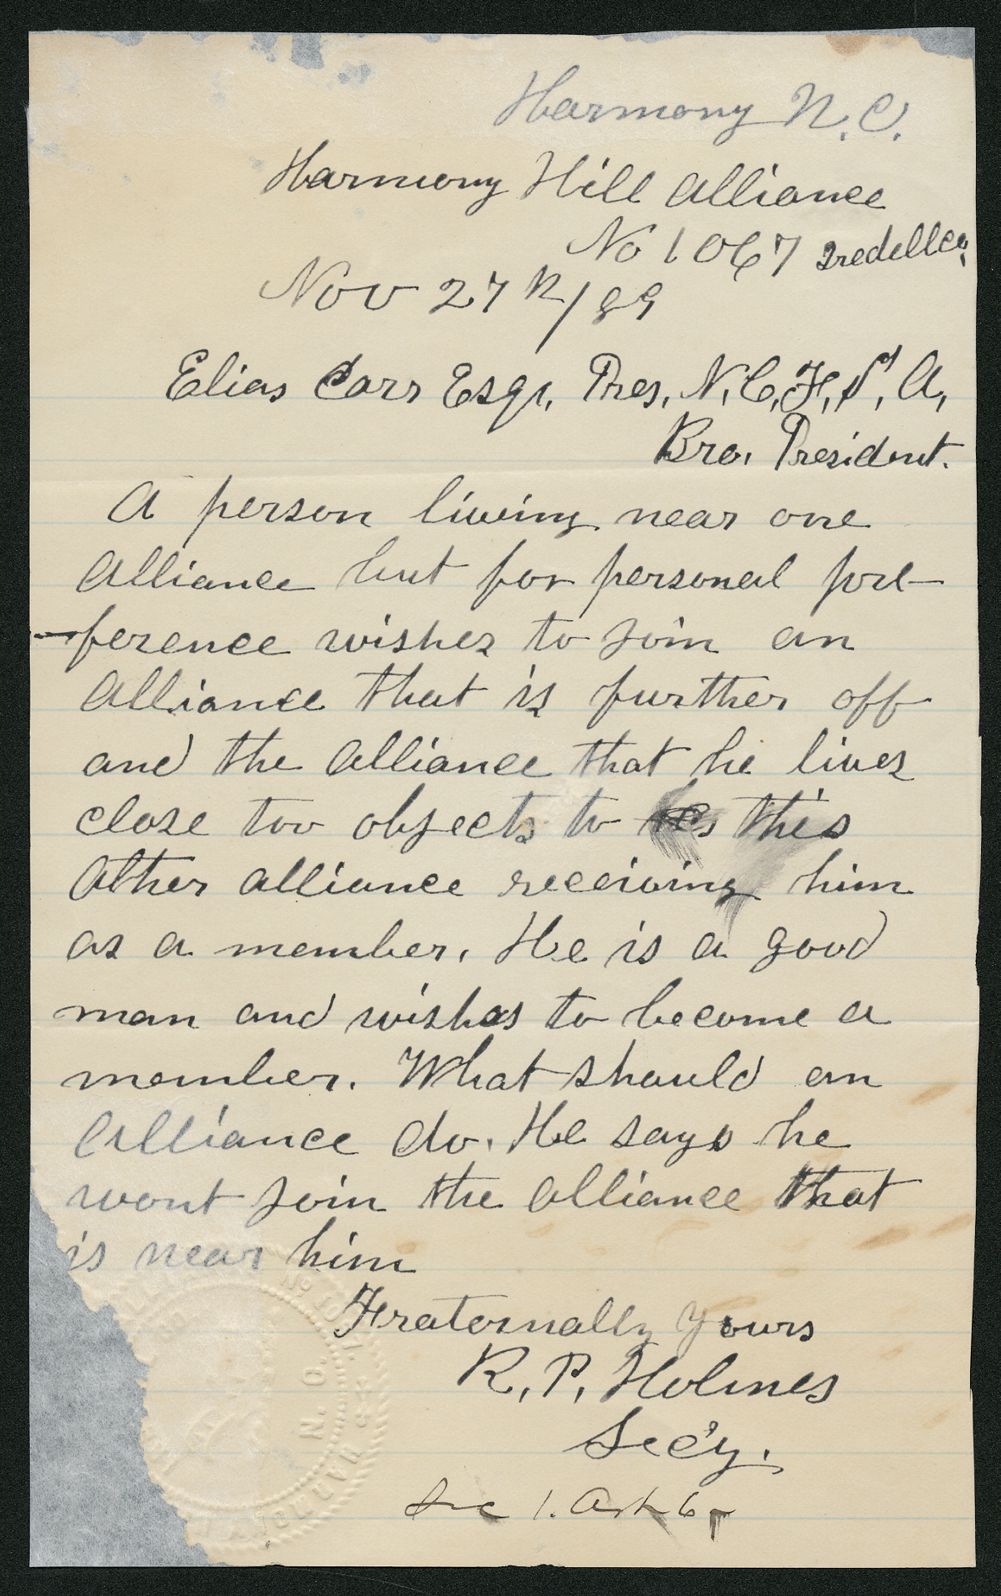 Harmony N.C.
Harmony Hill Alliance
No 1067 Iredell Co,
Nov 27th/89
Elias Carr Esqr, Pres, N,C,F,S,A,
Bro, President.
A person living near one
Alliance but for personal pre-
-ference wishes to join an
Alliance that is further off
and the Alliance that he lives
close too objects to this
Other alliance receiving him
as a member. He is a good
man and wishes to become a
member. What should an
Alliance do. He says he
wont join the Alliance that
is near him
Fraternally Yours
R, P, Holmes
Sec'y.
Sec 1. Art 6